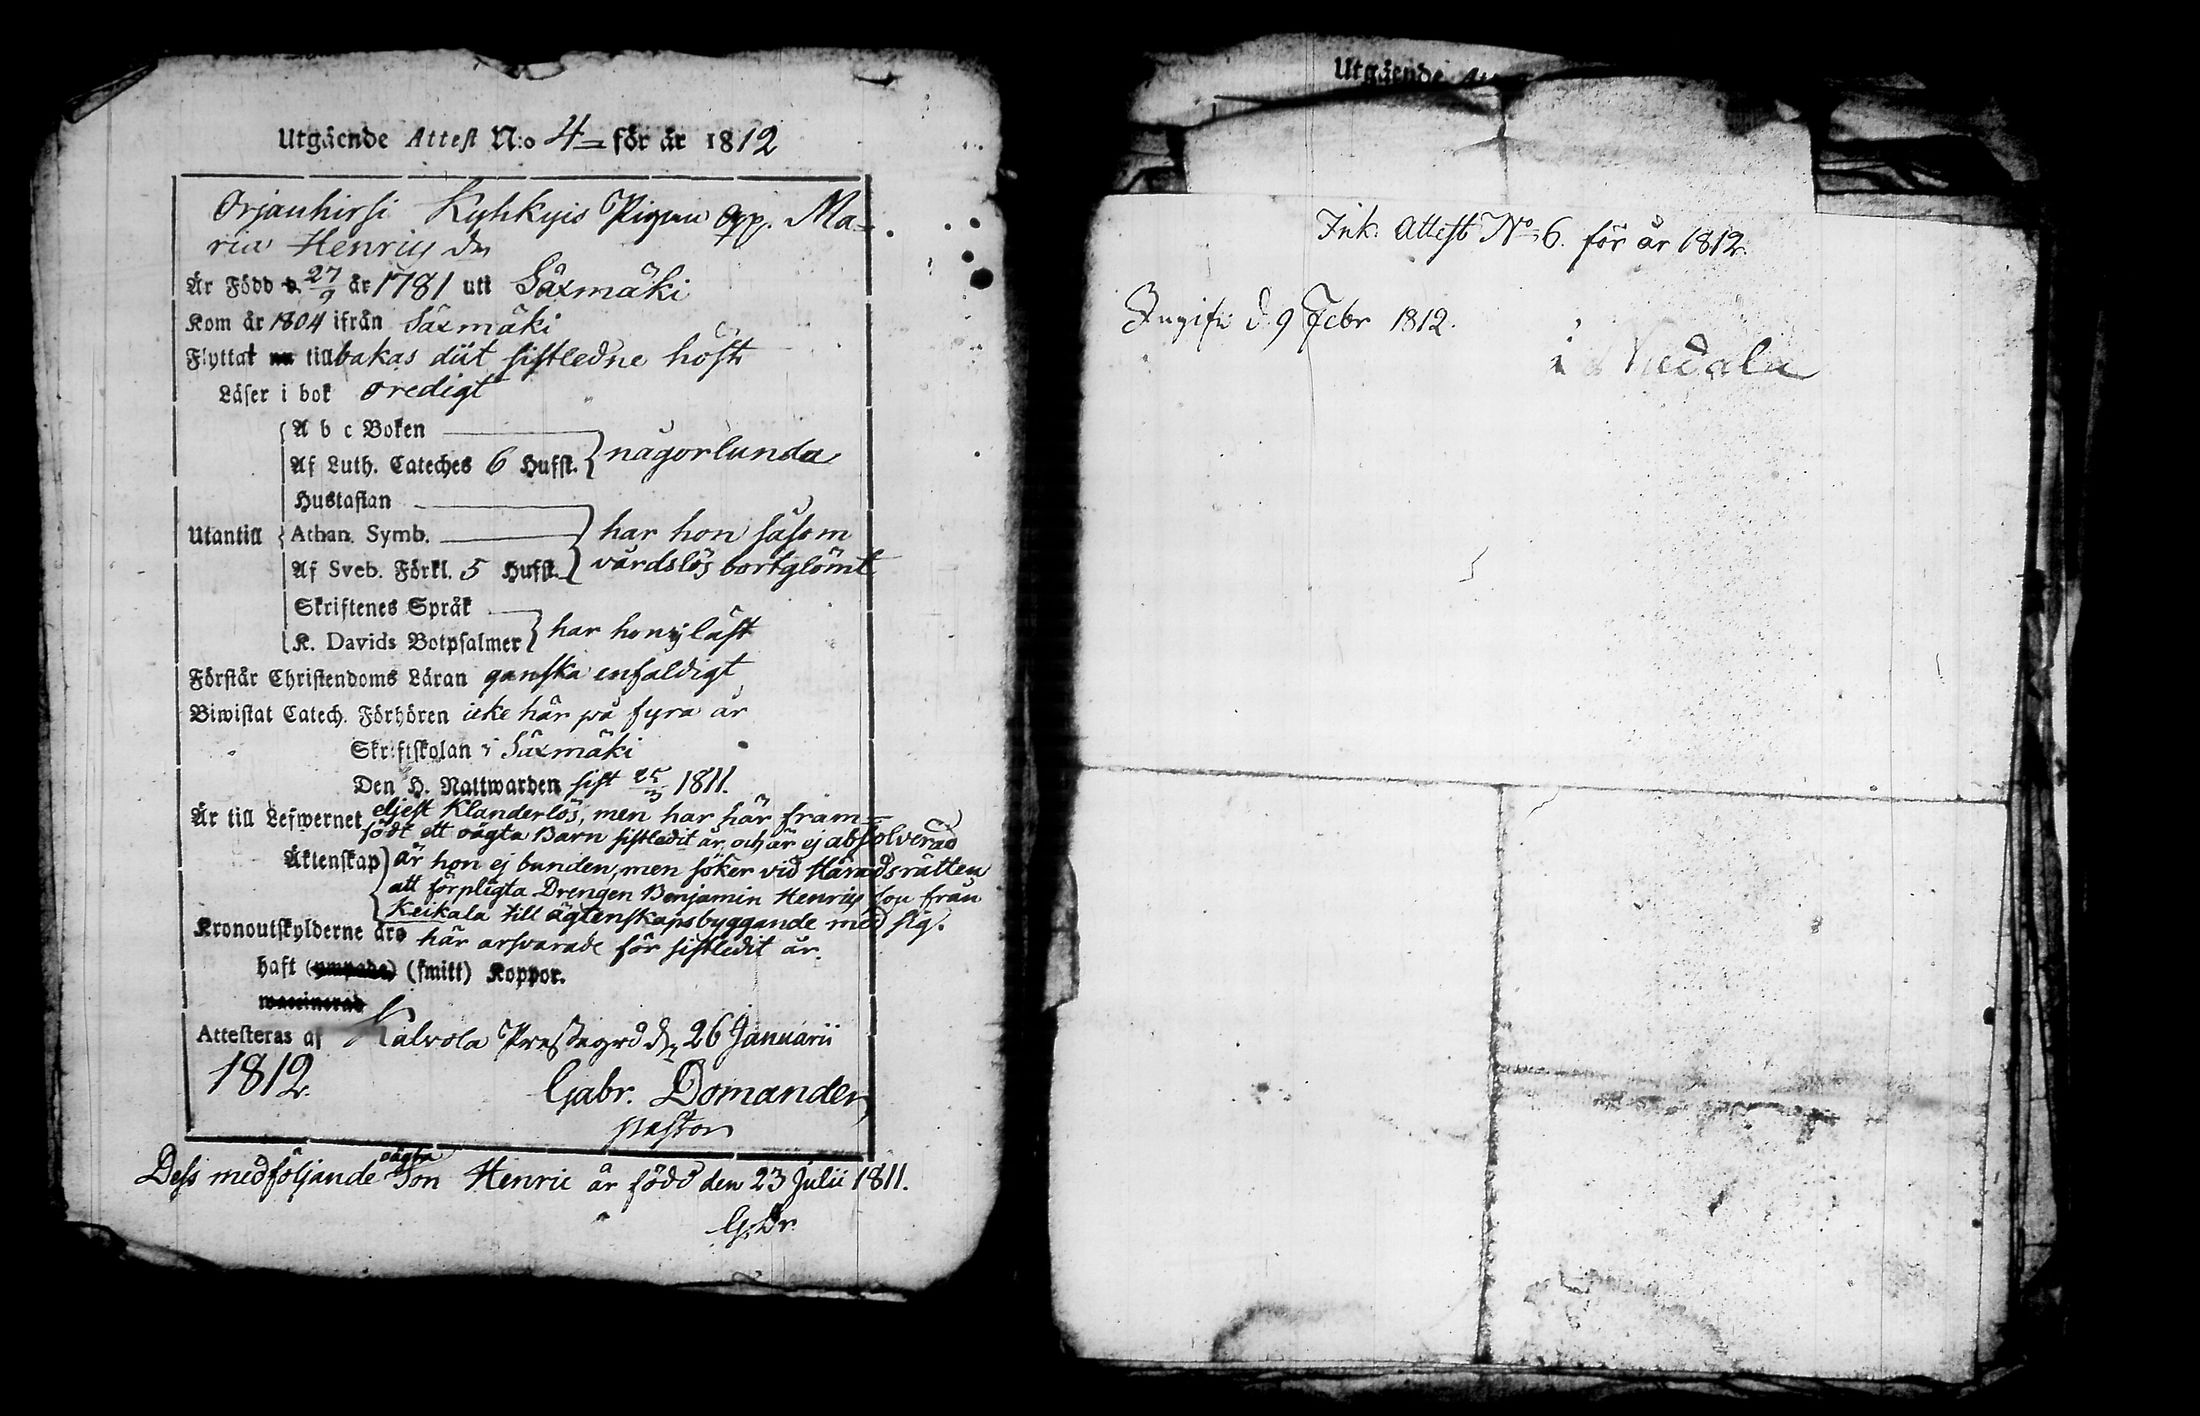 Utgående Attest N:o 4 för år 1812
Orjanhirsi Kyhkyis Pigan Ogp. Ma=
ria Henrics dr
Är Född d. 27/9 år 1781 uti Säxmäki
Kom år 1804 ifrån Säxmäki
Flyttat nu tillbakas dit sistledne höst
Läser i bok oredigt
A b c Boken
Af Luth. Cateches 6 Hufst. någorlunda
Hustaflan
Utantill Athan. Symb. har hon såsom
Af Sveb. Förkl. 5 Hufst. vårdslös bortglömt
Skriftenes Språk
K. Davids Botpsalmer har hon ej läst
Förstår Christendoms Läran ganska enfaldigt
Biwistat Catech. Förhören icke här på fyra år
Skriftskolan i Säxmäki
Den H. Nattwarden sist 25/3 1811.
Är till Lefwernet eljest Klanderlös, men har här fram=
födt ett oägta Barn sistledit år, och är ej absolverad
Äktenskap är hon ej bunden, men söker vid Häradsrätten
att förpligta Drengen Benjamin Henrics son från
Keikala till ägtenskapsbyggande med sig.
Kronoutskylderne äro här ansvarade för sistledit år.
haft (ympade) (smitt) Koppor.
waccinerad
Attesteras af Kalvola Prestegrd den 26 Januarii
1812.
Gabr. Domander
pastor
oägta
Dess medföljande Son Henric är född den 23 Julii 1811.
G. Dr.
Utgående
Ink. Attest No 6. för år 1812.
Ingifn d. 9 Febr 1812.
i